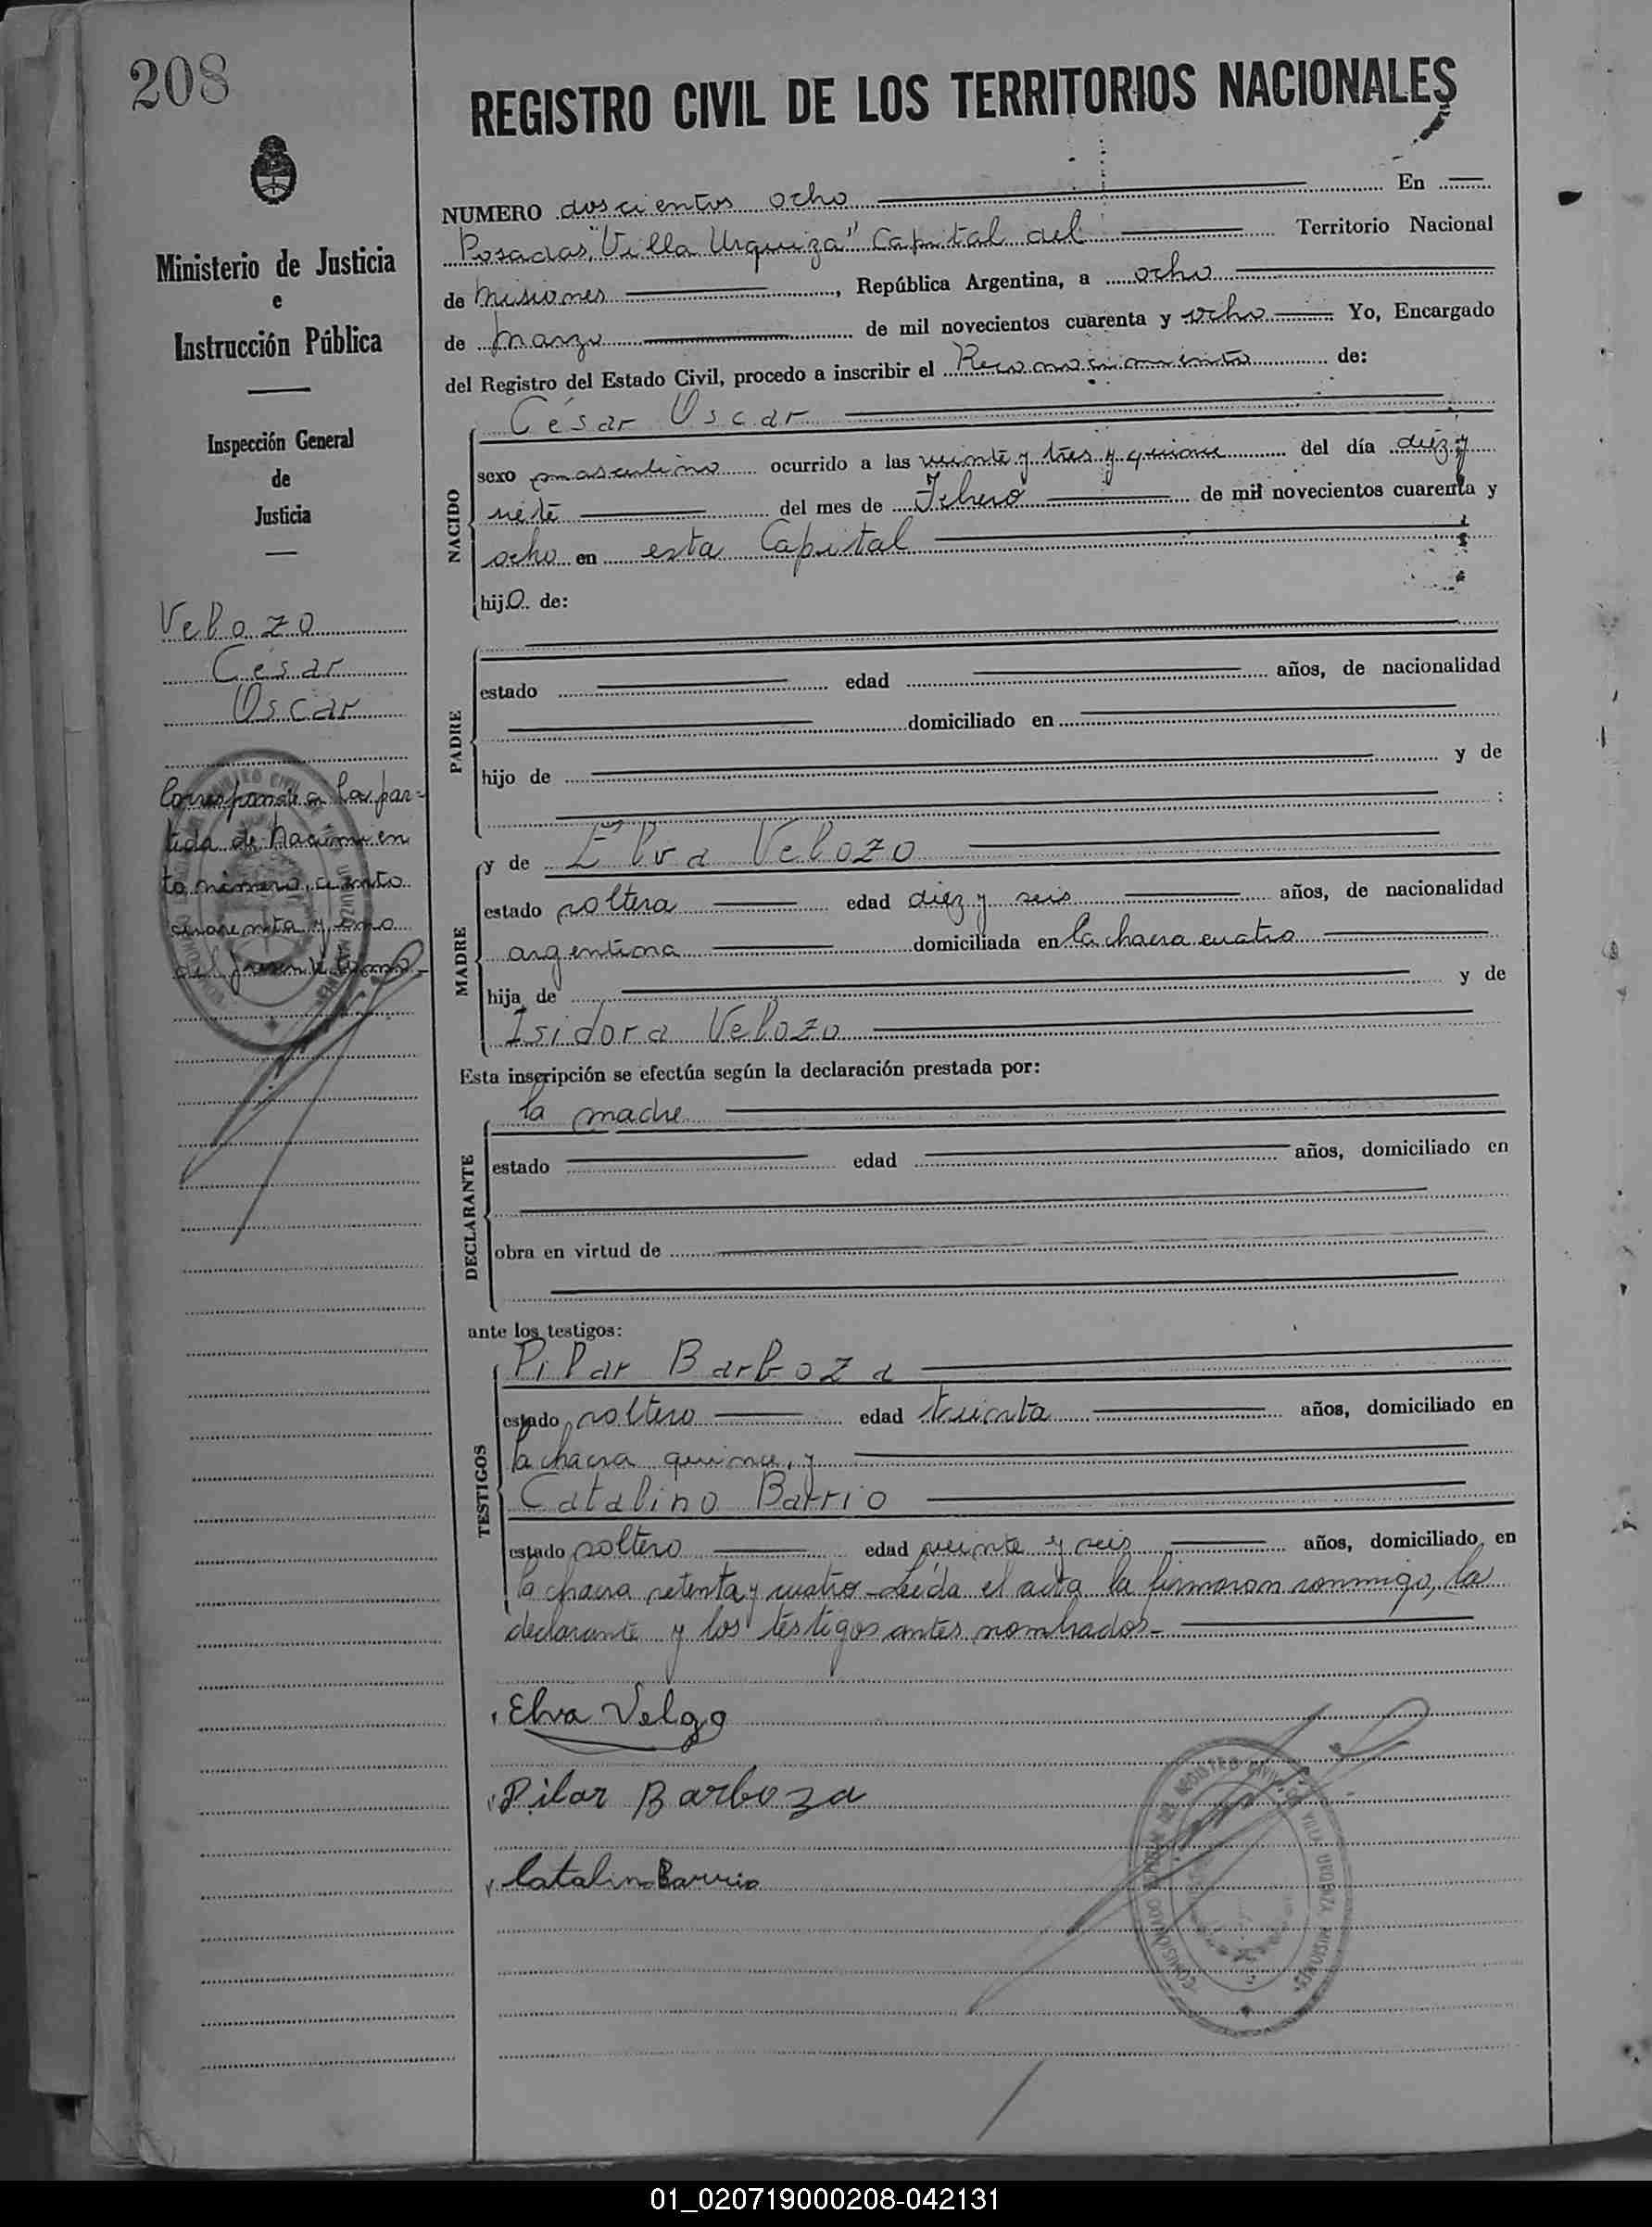 208
REGISTRO CIVIL DE LOS TERRITORIOS NACIONALES
Ministerio de Justicia
e
Instrucción Pública
Inspección General
de
Justicia
Velozo
César
Oscar
Corresponde a la par=
tida de Nacimien
to número, ciento
cincuenta y uno
del presente tomo.-
NUMERO doscientos ocho En
Posadas, "Villa Urquiza" Capital del Territorio Nacional
de Misiones, República Argentina, a ocho
de Marzo de mil novecientos cuarenta y ocho Yo, Encargado
del Registro del Estado Civil, procedo a inscribir el Reconocimiento de:
NACIDO
César Oscar
sexo masculino ocurrido a las veinte y tres y quince del día diez y
siete del mes de Febrero de mil novecientos cuarenta y
ocho en esta Capital
hijo de:
PADRE
estado edad años, de nacionalidad
domiciliado en
hijo de y de
MADRE
y de Elva Velozo
estado soltera edad diez y seis años, de nacionalidad
argentina domiciliada en la chacra cuatro
hija de y de
Isidora Velozo
Esta inscripción se efectúa según la declaración prestada por:
DECLARANTE
la madre
estado edad años, domiciliado en
obra en virtud de
ante los testigos:
TESTIGOS
Pilar Barboza
estado soltero edad treinta años, domiciliado en
la chacra quince, y
Catalino Barrio
estado soltero edad veinte y seis años, domiciliado en
la chacra setenta y cuatro - Leída el acta la firmaron conmigo, la
declarante y los testigos antes nombrados.-
Elva Velozo
Pilar Barboza
Catalino Barrio
REGISTRO CIVIL
VILLA URQUIZA MISIONES
01_020719000208-042131